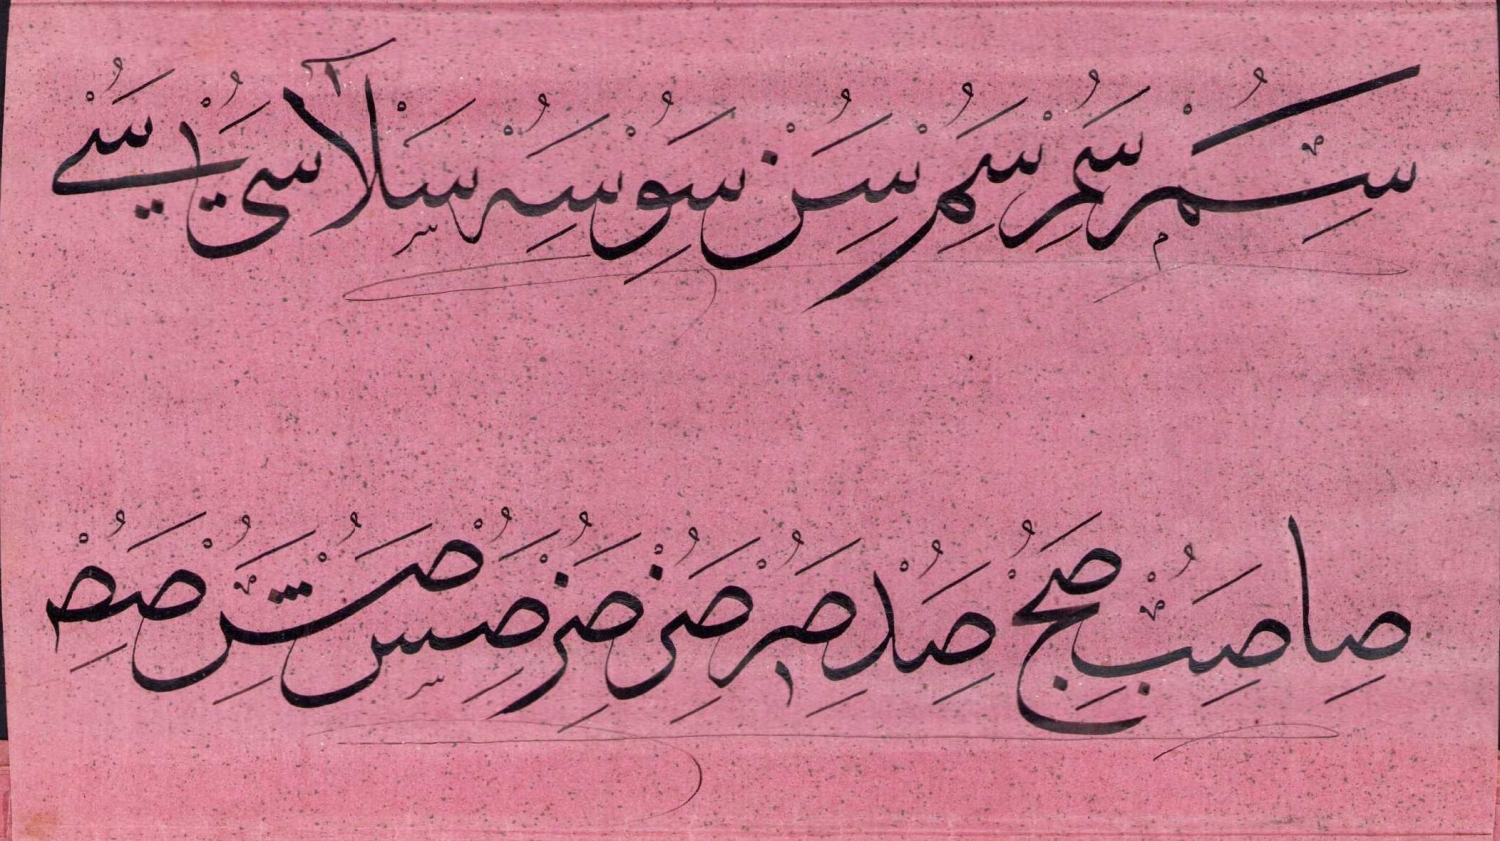 سم سم سم سن سو سه سلا سي سے
صا صب صج صد صر صز صز صس صش صص